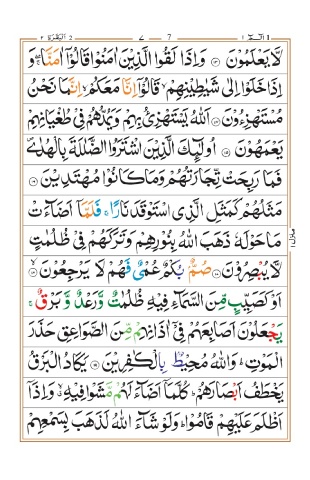 البقرة ٢ ٧ 7 الٓمّٓ ١
لَّا يَعْلَمُوْنَ ۝۱۳ وَاِذَا لَقُوا الَّذِيْنَ اٰمَنُوْا قَالُوْٓا اٰمَنَّا ۖۚ وَ
اِذَا خَلَوْا اِلٰى شَيٰطِيْنِهِمْ ۙ قَالُوْٓا اِنَّا مَعَكُمْ ۙ اِنَّمَا نَحْنُ
مُسْتَهْزِءُوْنَ ۝۱۴ اَللّٰهُ يَسْتَهْزِئُ بِهِمْ وَيَمُدُّهُمْ فِيْ طُغْيَانِهِمْ
يَعْمَهُوْنَ ۝۱۵ اُولٰٓئِكَ الَّذِيْنَ اشْتَرَوُا الضَّلٰلَةَ بِالْهُدٰى ۪
فَمَا رَبِحَتْ تِّجَارَتُهُمْ وَمَا كَانُوْا مُهْتَدِيْنَ ۝۱۶
مَثَلُهُمْ كَمَثَلِ الَّذِي اسْتَوْقَدَ نَارًا ۚ فَلَمَّآ اَضَآءَتْ
مَا حَوْلَهٗ ذَهَبَ اللّٰهُ بِنُوْرِهِمْ وَتَرَكَهُمْ فِيْ ظُلُمٰتٍ
لَّا يُبْصِرُوْنَ ۝۱۷ صُمٌّۢ بُكْمٌ عُمْيٌ فَهُمْ لَا يَرْجِعُوْنَ ۝۱۸
اَوْ كَصَيِّبٍ مِّنَ السَّمَآءِ فِيْهِ ظُلُمٰتٌ وَّرَعْدٌ وَّبَرْقٌ ۚ
يَجْعَلُوْنَ اَصَابِعَهُمْ فِيْٓ اٰذَانِهِمْ مِّنَ الصَّوَاعِقِ حَذَرَ
الْمَوْتِ ؕ وَاللّٰهُ مُحِيْطٌۢ بِالْكٰفِرِيْنَ ۝۱۹ يَكَادُ الْبَرْقُ
يَخْطَفُ اَبْصَارَهُمْ ؕ كُلَّمَآ اَضَآءَ لَهُمْ مَّشَوْا فِيْهِ ۙ وَاِذَآ
اَظْلَمَ عَلَيْهِمْ قَامُوْا ؕ وَلَوْ شَآءَ اللّٰهُ لَذَهَبَ بِسَمْعِهِمْ
منزل ١